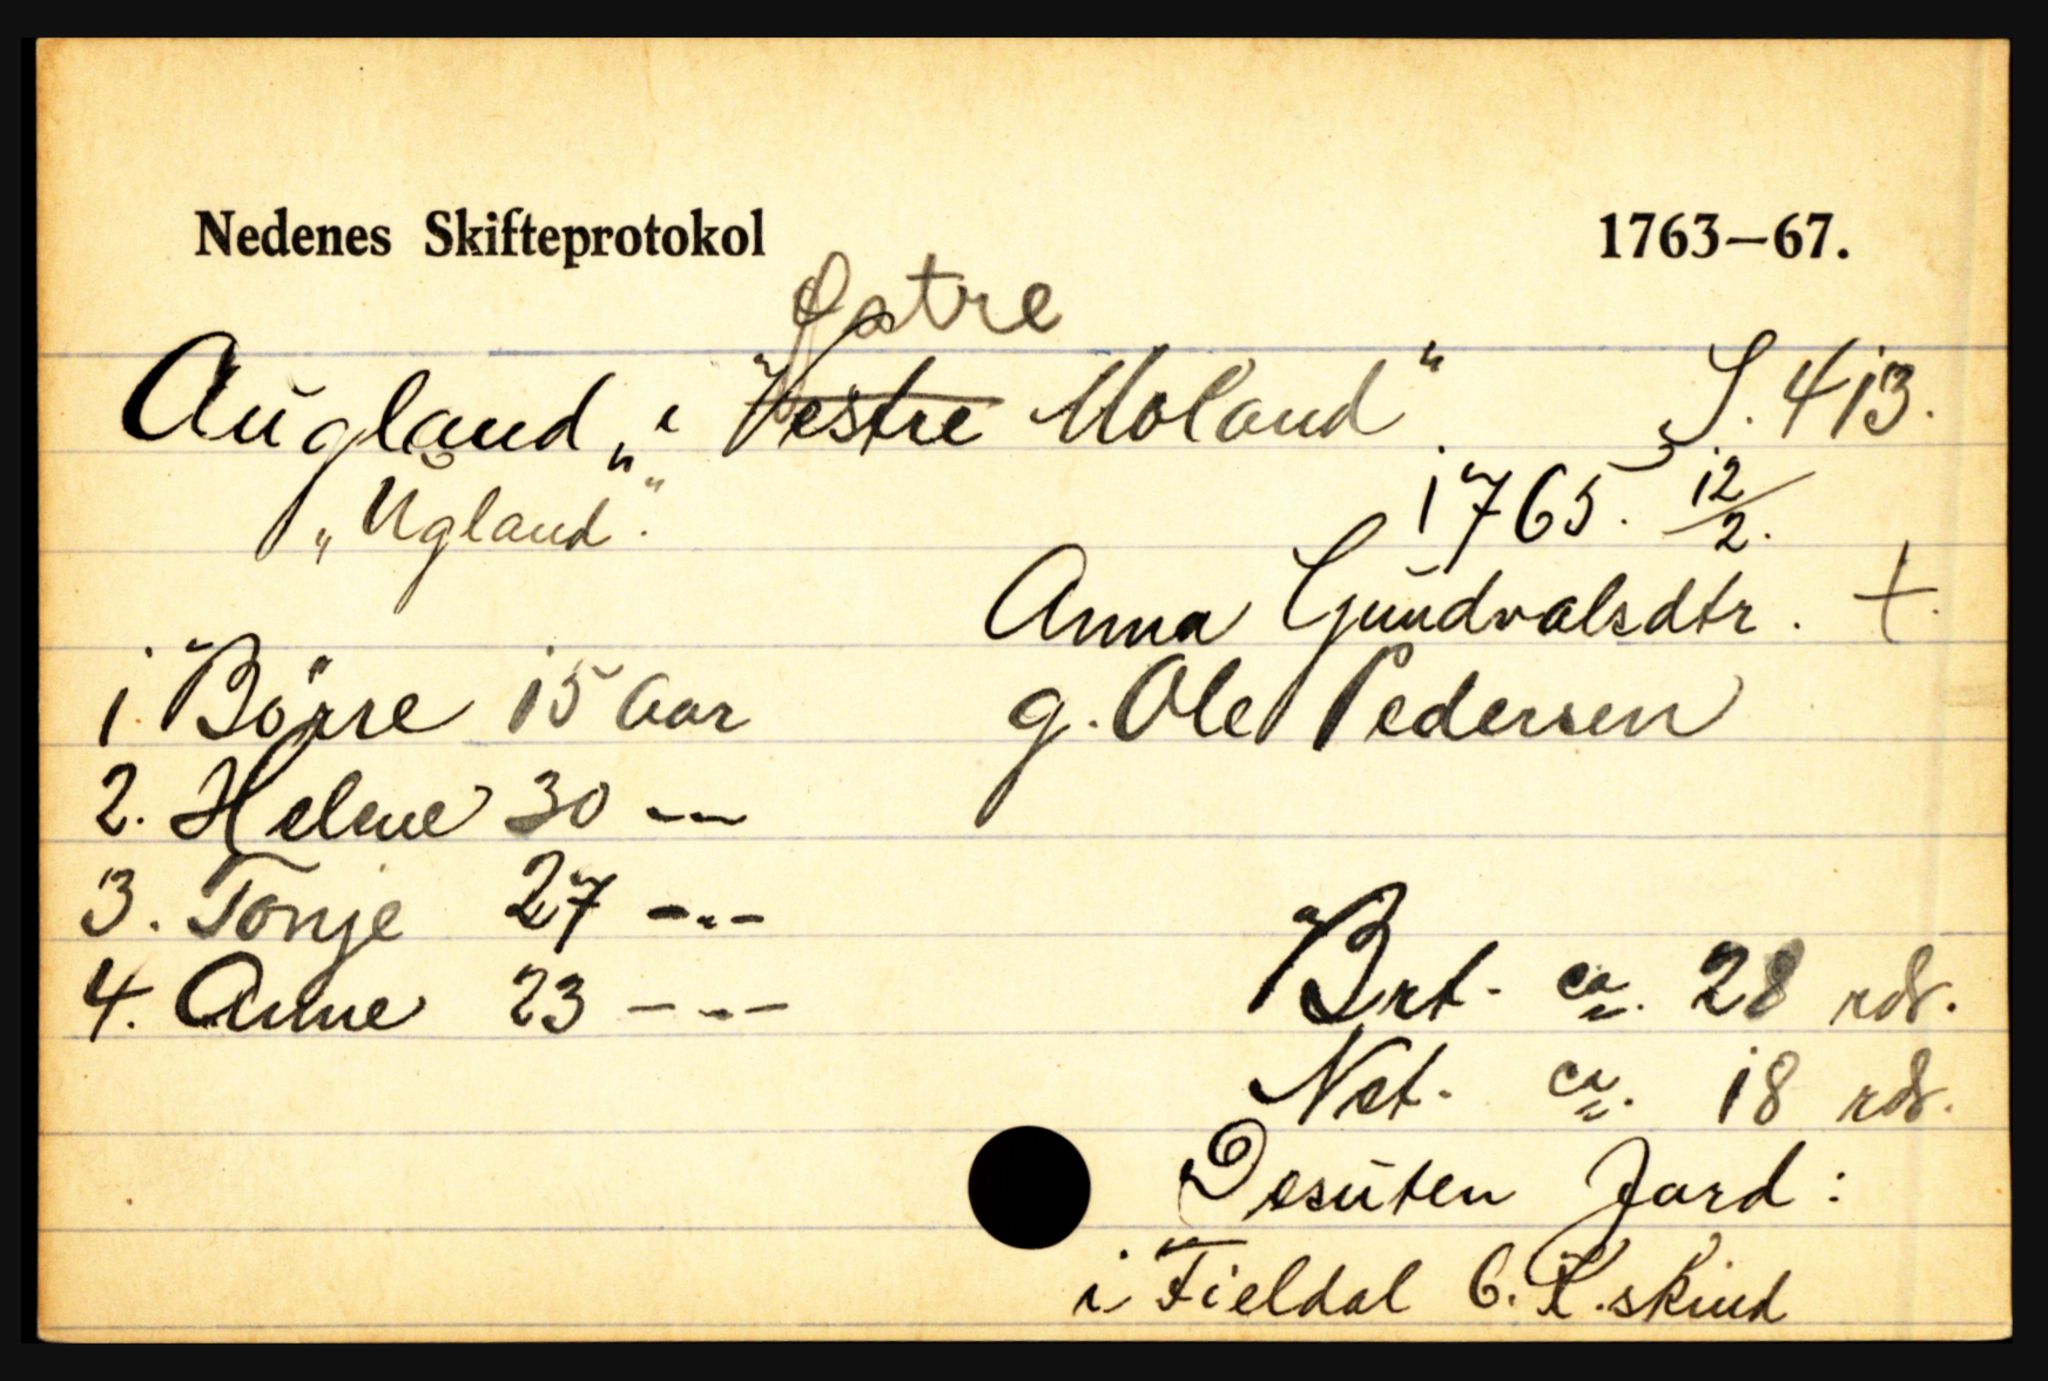 Nedenes Skifteprotokol 1763—67.
Østre
Augland „i Vestre Moland" S. 413.
„Ugland". 1765. 12/2.
Anna Gundvalsdtr. +.
1. Börre 15 Aar g. Ole Pedersen
2. Helene 30 -"-
3. Tonje 27 -"-
4. Anne 23 -"-
Brt. ca. 28 rdr.
Net. ca. 18 rdr.
Desuten Jord:
i Fieldal 6. K.skind